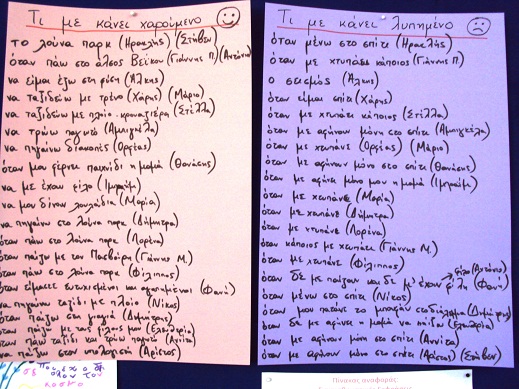 Τι με κάνει χαρούμενο
το λούνα παρκ (Ηρακλής) (Στήβεν)
όταν πάω στο άλσος Βεΐκου (Γιάννης Π.) (Αντώνιο)
να είμαι έξω στη φύση (Άλκης)
να ταξιδεύω με τρένο (Χάρης) (Μάριο)
να ταξιδεύω με πλοίο - κρουαζιέρα (Στέλλα)
να τρώω παγωτό (Αμπιγκέλα)
να πηγαίνω διακοπές (Ορφέας)
όταν μου φέρνει παιχνίδι η μαμά (Θανάσης)
να με έχουν φίλο
να μου δίνουν λουλούδια (Μαρία)
να πηγαίνω στο λούνα παρκ (Δήμητρα)
όταν πάω στο λούνα παρκ (Λορένα)
όταν παίζω με τον (Γιάννης Μ.)
όταν πάω στο λούνα παρκ (Φίλιππος)
όταν είμαστε ευτυχισμένοι και αγαπημένοι (Φανή)
να πηγαίνω ταξίδι με πλοίο (Νίκος)
όταν παίζω στη (Δημήτρης)
όταν παίζω με τους φίλους μου (Ελευθερία)
όταν πάω ταξίδι και τρώω παγωτό (Αννίτα)
να παίζω στον υπολογιστή (Αρίστος)
Τι με κάνει λυπημένο
όταν μένω στο σπίτι (Ηρακλής)
όταν με χτυπάει κάποιος (Γιάννης Π.)
ο σεισμός (Άλκης)
όταν είμαι σπίτι (Χάρης)
όταν με χτυπάει κάποιος (Στέλλα)
όταν με αφήνουν μόνη στο σπίτι (Αμπιγκέλα)
όταν με χτυπάνε (Ορφέας) (Μάριο)
όταν με αφήνουν μόνο στο σπίτι (Θανάσης)
όταν με αφήνει μόνο μου η μαμά
όταν με χτυπάνε (Μαρία)
όταν με χτυπάνε (Δήμητρα)
όταν με χτυπάνε (Λορένα)
όταν κάποιος με χτυπάει (Γιάννης Μ.)
όταν με χτυπάνε (Φίλιππος)
όταν δε με παίζουν και δε μ' έχουν φίλη (Φανή)
φίλο (Αντώνιο)
όταν μένω στο σπίτι (Νίκος)
όταν μου πετάνε το μπουφάν στο διάλειμμα (Δημήτρης)
όταν δε με αφήνει η μαμά να παίξω (Ελευθερία)
όταν με αφήνουν μόνη στο σπίτι (Αννίτα)
όταν με αφήνουν μόνο στο σπίτι (Αρίστος) (Στήβεν)
Πίνακας αναφοράς: